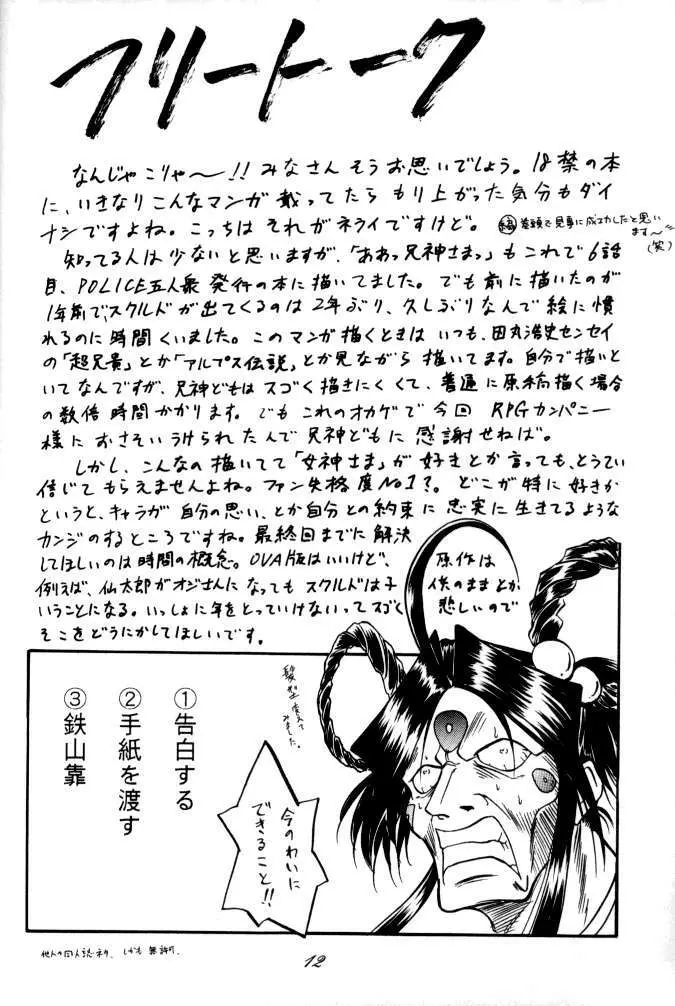 フリートーク
なんじゃこりゃ〜!!みなさんそうお思いでしょう。18禁の本
に、いきなりこんなマンガ載ってたらもり上がった気分もダイ
ナシですよね。こっちはそれがネライですけど。
編 巻頭で見事に成功したと思い
ます〜
(笑)
知ってる人は少ないと思いますが、「ああっ兄神さまっ」もこれで6話
目、POLICE五人衆発行の本に描いてました。でも前に描いたのが
1年前で、スクルドが出てくるのは2年ぶり、久しぶりなんで絵に慣
れるのに時間くいました。このマンガ描くときはいつも、田丸浩史センセイ
の「超兄貴」とか「アルプス伝説」とか見ながら描いてます。自分で描いと
いてなんですが、兄神どもはスゴく描きにくくて、普通に原稿描く場合
の数倍時間かかります。でもこれのオカゲで今回RPGカンパニー
様におさそいうけられたんで兄神どもに感謝せねば。
しかし、こんなの描いてて「女神さま」が好きとか言っても、とうてい
信じてもらえませんよね。ファン失格度No1?。どこが特に好きか
というと、キャラが自分の思い、とか自分との約束に忠実に生きてるような
カンジのするところですね。最終回までに解決
してほしいのは時間の概念。OVA版はいいけど、原作は
例えば、仙太郎がオジさんになってもスクルドは子供のままとか
いうことになる。いっしょに年をとっていけないってスゴく悲しいので
そこをどうにかしてほしいです。
髪型変えて
みました。
今のわいに
できること!!
①告白する
②手紙を渡す
③鉄山靠
他人の同人誌ネタ。しかも無許可。
12